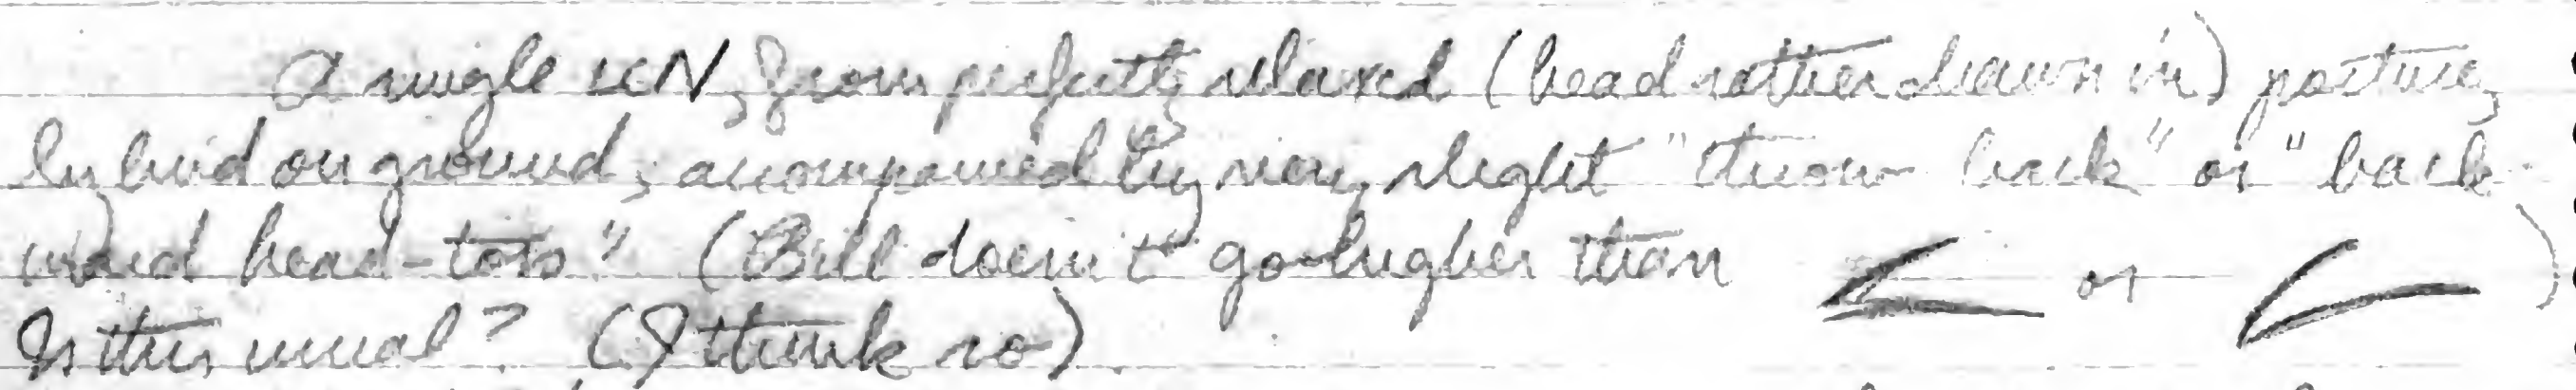 A single KN, from perfectly relaxed (head rather drawn in) posture,
by bird on ground, accompanied by very slight "throw-back" or "back-
ward head-toss". (Bill doesn't go higher than or )
Is this usual? (I think so)